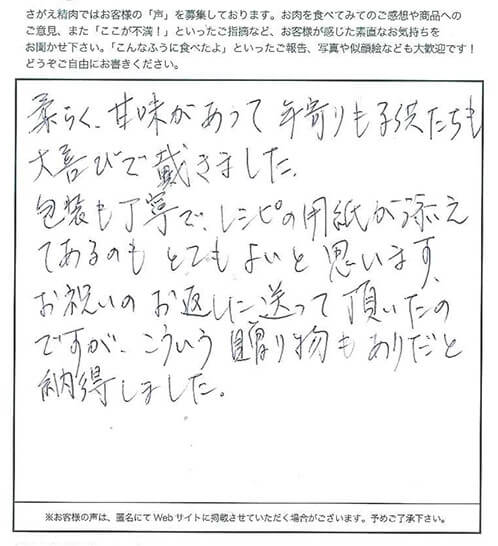 さがえ精肉ではお客様の「声」を募集しております。お肉を食べてみてのご感想や商品への
ご意見、また「ここが不満！」といったご指摘など、お客様が感じた素直なお気持ちを
お聞かせ下さい。「こんなふうに食べたよ」といったご報告、写真や似顔絵なども大歓迎です！
どうぞご自由にお書きください。
柔らく、甘味があって年寄りも子供たちも
大喜びで戴きました。
包装も丁寧で、レシピの用紙が添え
てあるのもとてもよいと思います。
お祝いのお返しに送って頂いたの
ですが、こういう贈り物もありだと
納得しました。
※お客様の声は、匿名にてWebサイトに掲載させていただく場合がございます。予めご了承下さい。